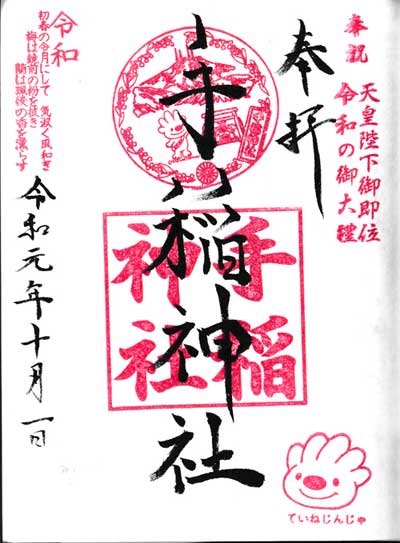 奉祝
天皇陛下御即位
令和の御大禮
奉拝
手稲神社
手稲
神社
令和
初春の令月にして 気淑く風和ぎ
梅は鏡前の粉を披き
蘭は珮後の香を薫らす
令和元年十月一日
ていねじんじゃ